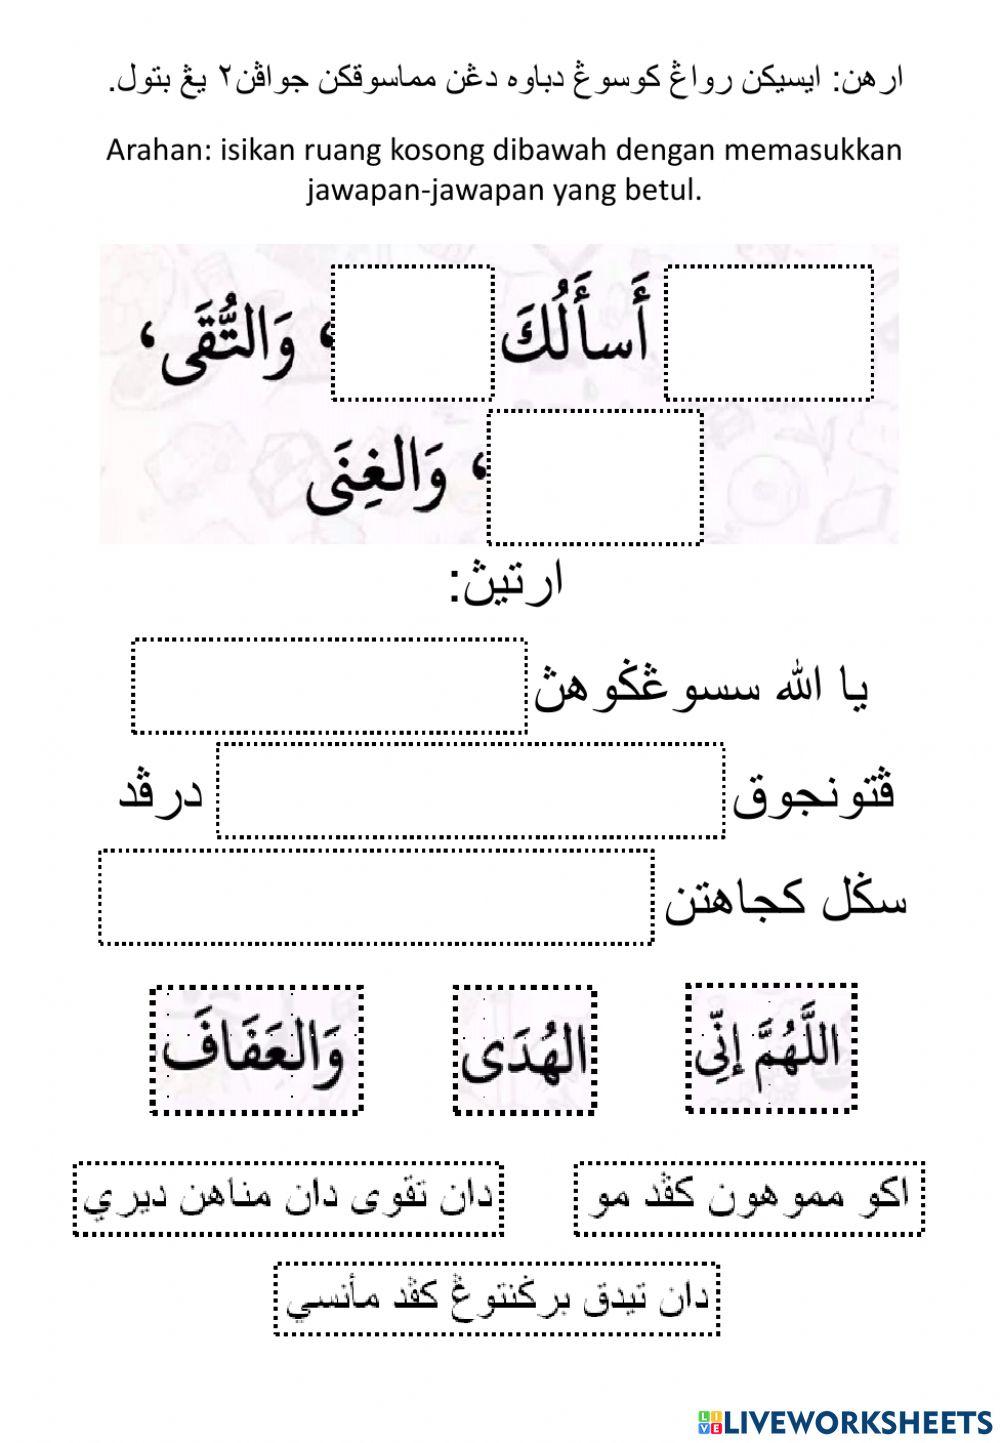 ارهن: ايسيكن رواڠ كوسوڠ دباوه دڠن مماسوقكن جواڤن٢ يڠ بتول.
Arahan: isikan ruang kosong dibawah dengan memasukkan
jawapan-jawapan yang betul.
أَسأَلُكَ ، وَالتُّقَى ،
، وَالغِنَى
ارتيڽ:
يا الله سسوڠݢوهڽ
ڤتونجوق درڤد
سݢل كجاهتن
اللَّهُمَّ إنِّى الهُدَى وَالعَفَافَ
اكو مموهون كڤد مو دان تقوى دان مناهن ديري
دان تيدق برݢنتوڠ كڤد مأنسي
LIVEWORKSHEETS